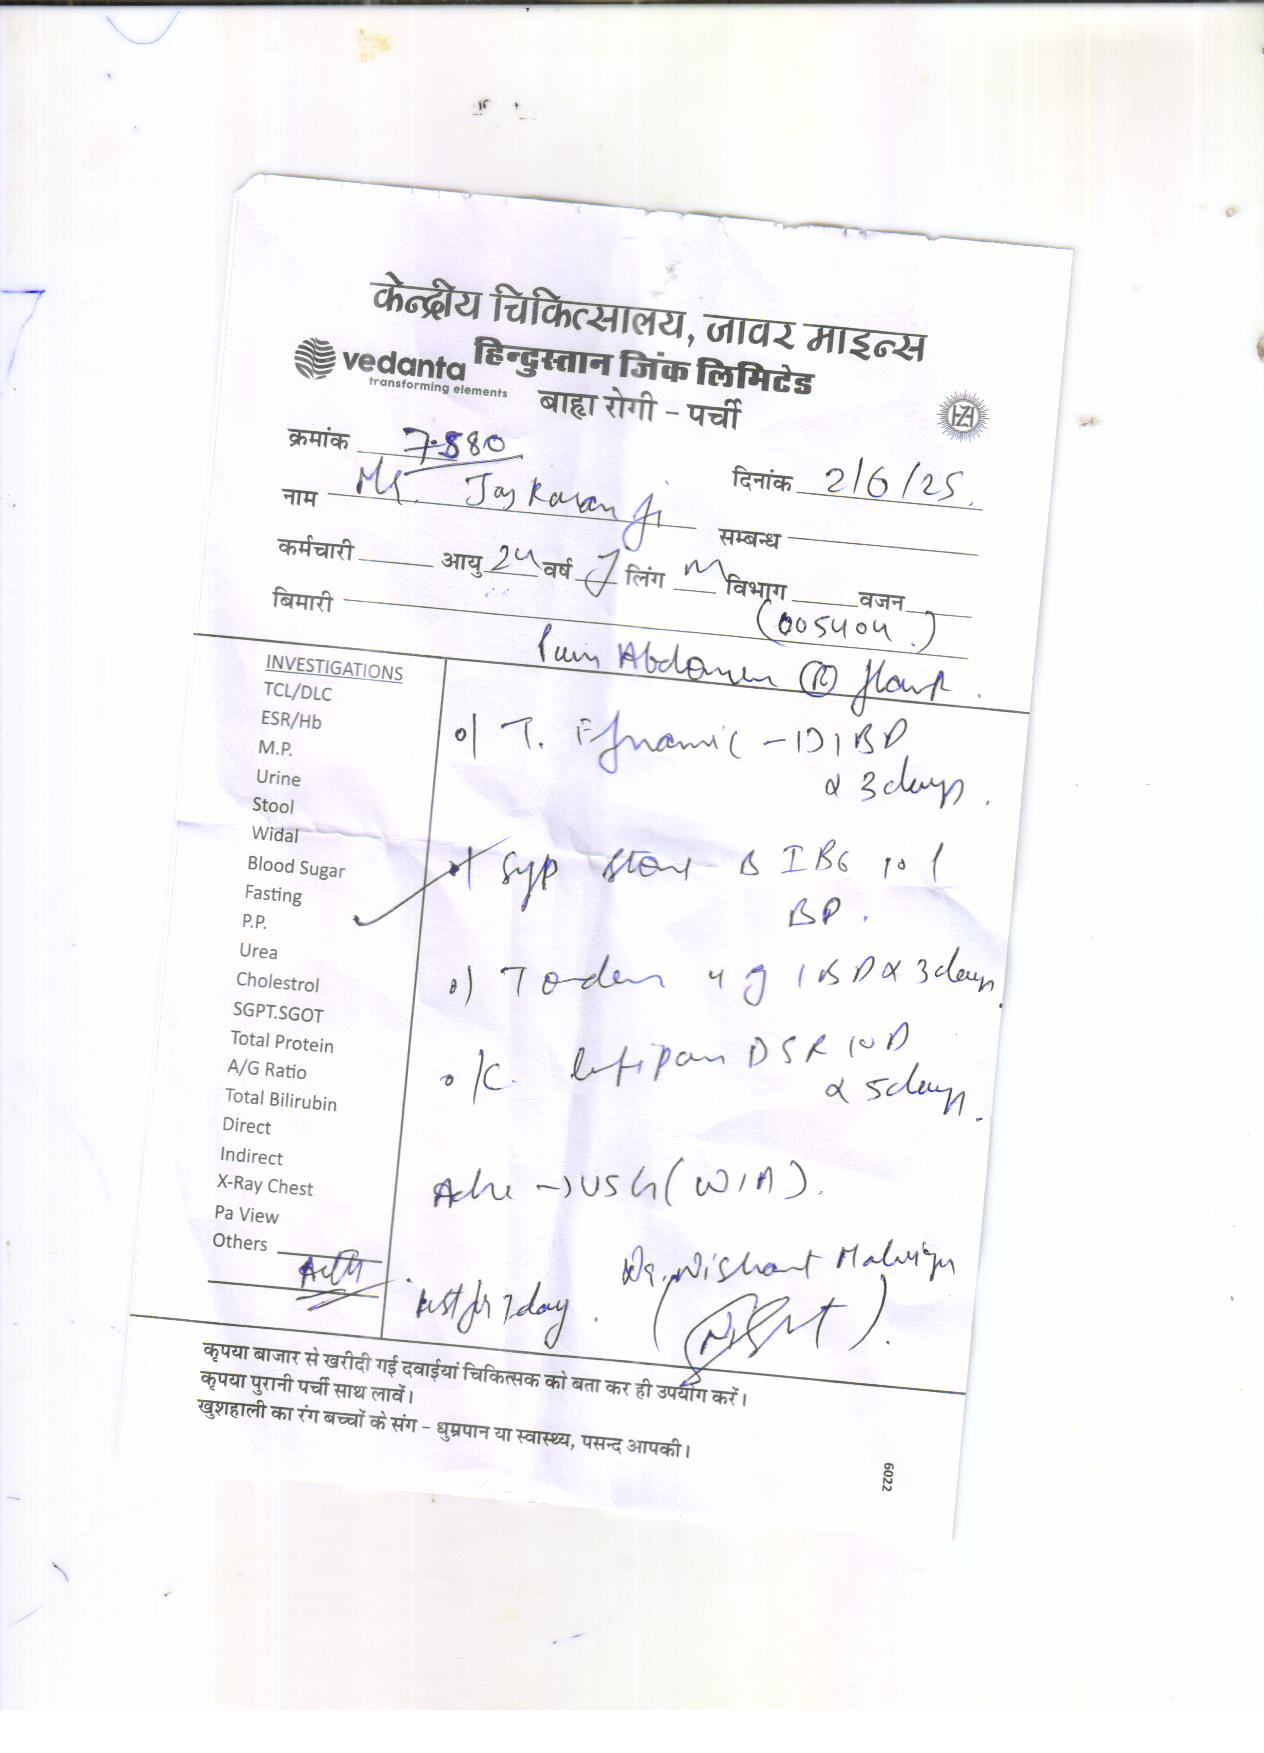 केन्द्रीय चिकित्सालय, जावर माइन्स
vedanta हिन्दुस्तान जिंक लिमिटेड
transforming elements
बाह्य रोगी - पर्ची
HZL
क्रमांक 7880
दिनांक 2/6/25.
नाम Mr. Jaykaran Ji
सम्बन्ध
कर्मचारी आयु 24 वर्ष लिंग M विभाग वजन
बिमारी (005404)
Pain Abdomen (R) flank.
INVESTIGATIONS
TCL/DLC
ESR/Hb
M.P.
Urine
Stool
Widal
Blood Sugar
Fasting
P.P.
Urea
Cholestrol
SGPT.SGOT
Total Protein
A/G Ratio
Total Bilirubin
Direct
Indirect
X-Ray Chest
Pa View
Others
T. - 1 BD
x 3 days.
Syp
T 1 BD x 3 days.
C. DSR 10D
x 5 days.
Adv -> USG (W/A).
Dr. Nishant
Rest for 7 day.
कृपया बाजार से खरीदी गई दवाईयां चिकित्सक को बता कर ही उपयोग करें।
कृपया पुरानी पर्ची साथ लावें।
खुशहाली का रंग बच्चों के संग - धुम्रपान या स्वास्थ्य, पसन्द आपकी।
6022